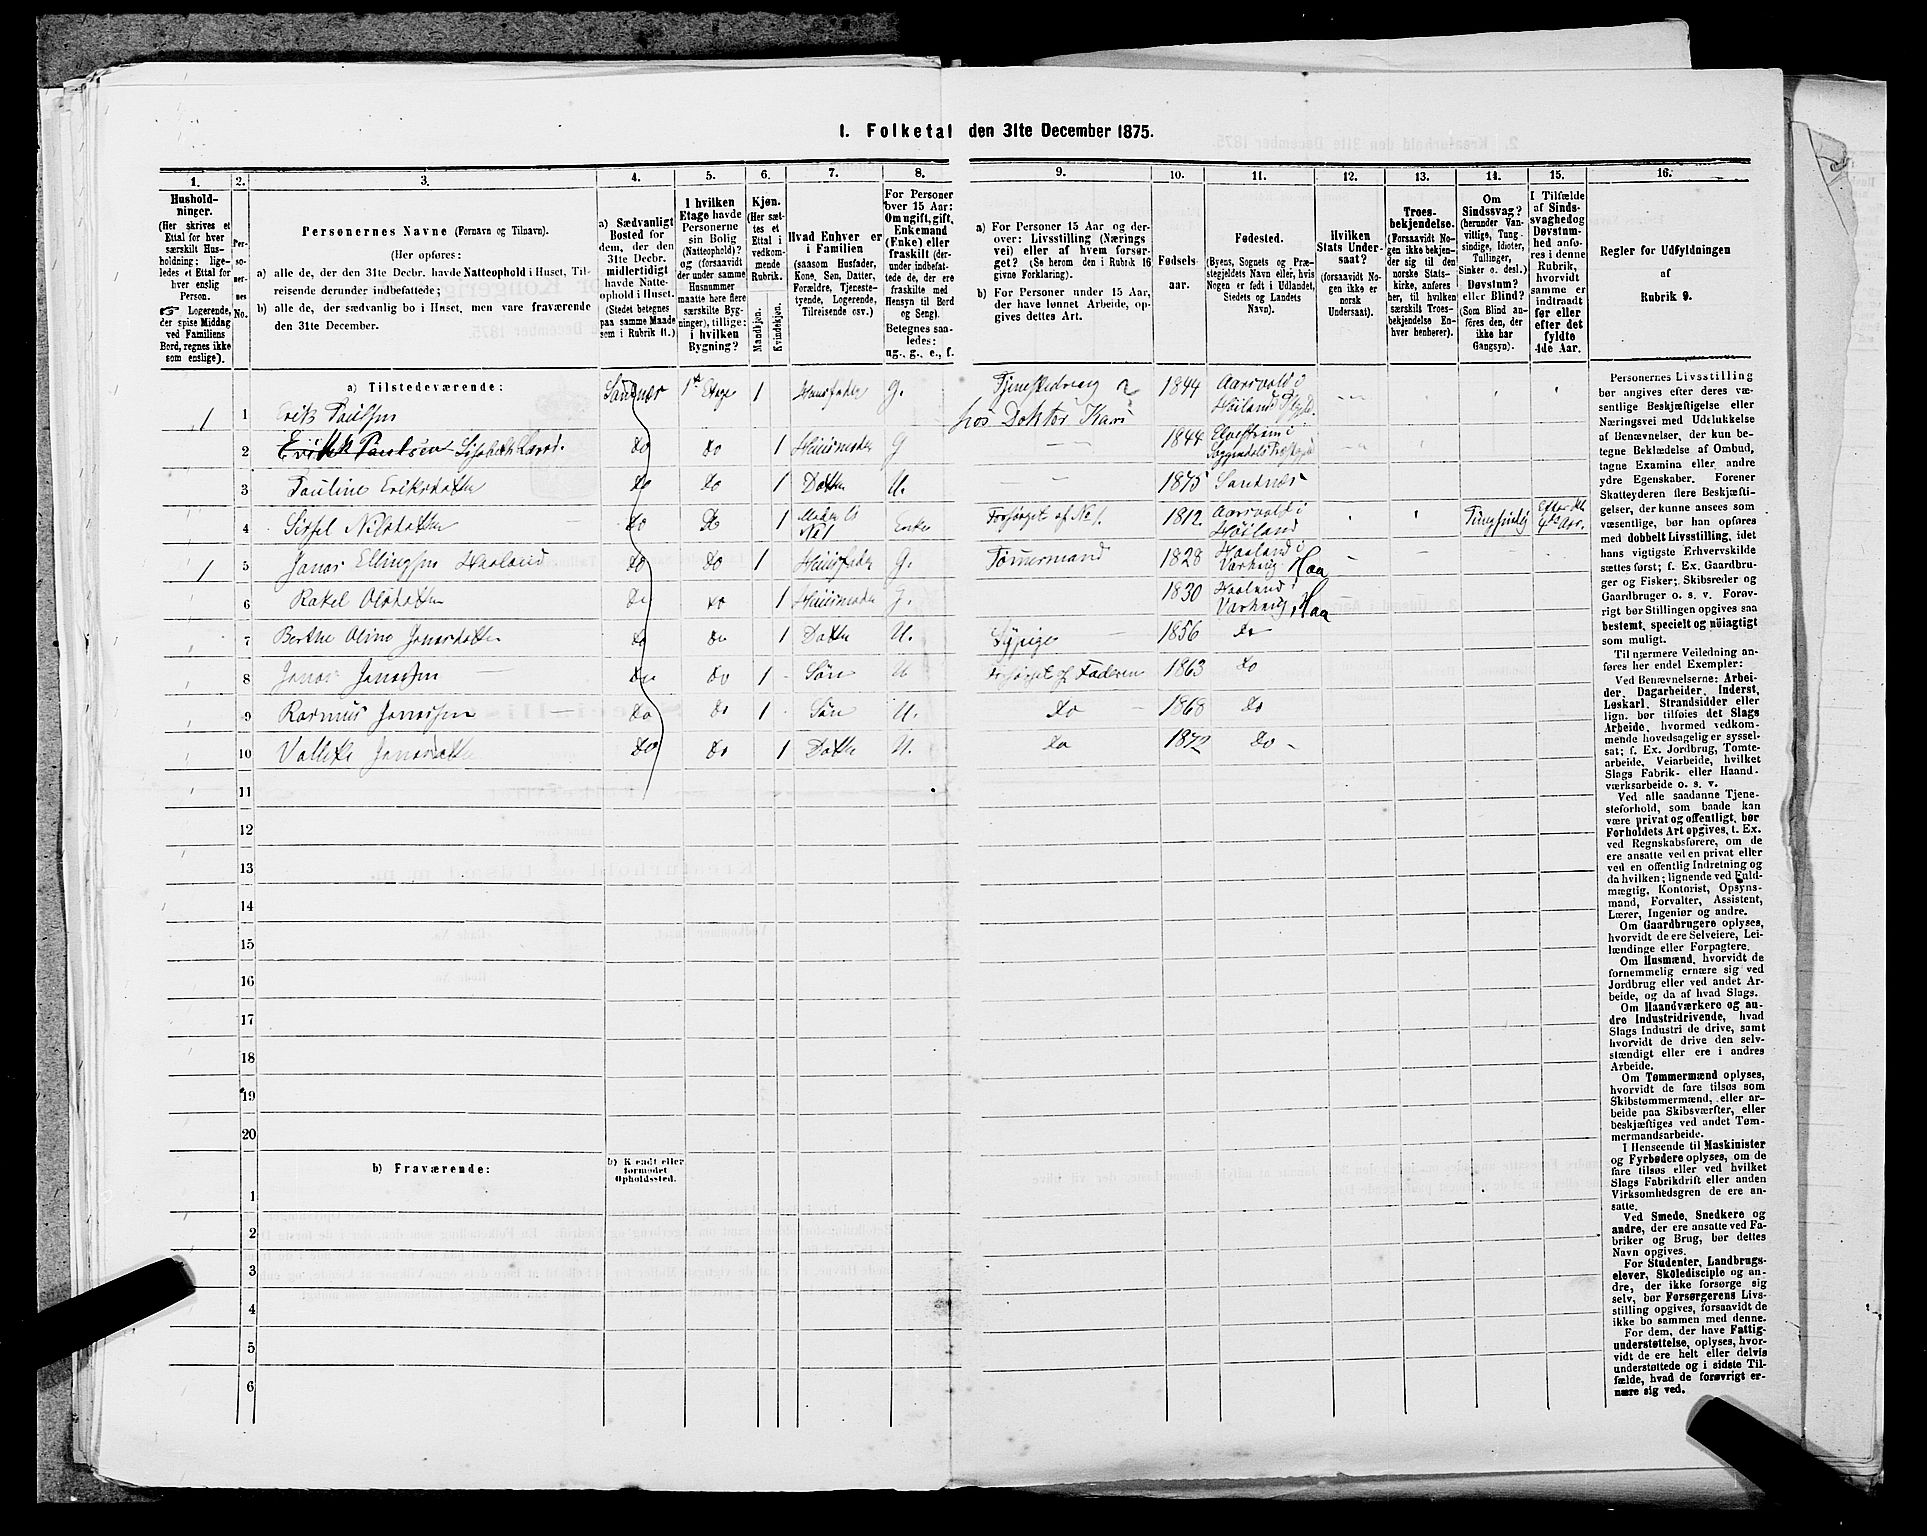 1. Folketal den 31te December 1875.
1. 2. 3. 4. 5. 6. 7. 8. 9. 10. 11. 12. 13. 14. 15. 16.
Hushold-
ninger.
(Her skrives et
Ettal for hver
særskilt Hus-
holdning; lige-
ledes et Ettal for
hver enslig
Person.
☞ Logerende,
der spise Middag
ved Familiens
Bord, regnes ikke
som enslige).
Per-
so-
ner-
nes
No.
Personernes Navne (Fornavn og Tilnavn).
(Her opføres:
a) alle de, der den 31te Decbr. havde Natteophold i Huset, Til-
reisende derunder indbefattede;
b) alle de, der sædvanlig bo i Huset, men vare fraværende
den 31te December.
a) Sædvanligt
Bosted for
dem, der den
31te Decbr.
midlertidigt
havde Natte-
ophold i Huset.
(Stedet betegnes
paa samme Maade
som i Rubrik 11.)
I hvilken
Etage havde
Personerne
sin Bolig
(Natteophold)?
og (forsaavidt
der under samme
Husnummer
maatte høre flere
særskilte Byg-
ninger), tillige:
i hvilken
Bygning?
Kjøn.
(Her sæt-
tes et
Ettal i
vedkom-
mende
Rubrik.
Mandkjøn.
Kvindekjøn.
Hvad Enhver er
i Familien
(saasom Husfader,
Kone, Søn, Datter,
Forældre, Tjeneste-
tyende, Logerende,
Tilreisende osv.)
For Personer
over 15 Aar:
Om ugift, gift,
Enkemand
(Enke) eller
fraskilt (der-
under indbefat-
tede de, der ere
fraskilte med
Hensyn til Bord
og Seng).
Betegnes saa-
ledes:
ug., g., e., f.
a) For Personer 15 Aar og der-
over: Livsstilling (Nærings
vei) eller af hvem forsør-
get? (Se herom den i Rubrik 16
givne Forklaring).
b) For Personer under 15 Aar,
der have lønnet Arbeide, op-
gives dettes Art.
Fødsels-
aar.
Fødested.
(Byens, Sognets og Præ-
stegjeldets Navn eller, hvis
Nogen er født i Udlandet,
Stedets og Landets
Navn).
Hvilken
Stats Under-
saat?
(forsaavidt No-
gen ikke er
norsk
Undersaat).
Troes-
bekjendelse.
(Forsaavidt No-
gen ikke bekjen-
der sig til den
norske Stats-
kirke, anføres
her, til hvilken
særskilt Troes-
bekjendelse En-
hver henhører).
Om
Sindssvag?
(herunder Van-
vittige, Tung-
sindige, Idioter,
Tullinger,
Sinker o. desl.)
Døvstum?
eller Blind?
(Som Blind an-
føres den, der
ikke har
Gangsyn).
I Tilfælde
af Sinds-
svaghed og
Døvstum-
hed anfø-
res i denne
Rubrik,
hvorvidt
samme er
indtraadt
før eller
efter det
fyldte
4de Aar.
Regler for Udfyldningen
af
Rubrik 9.
a) Tilstedeværende:
1 1 Erik Paulsen Sandnæs 1ste Etage 1 Huusfader G. hos Doktor 1844 Aarsvold i Høiland
2 Erik Paulsen Lisabeth Do Do 1 Huusmoder G 1844
3 Pauline Eriksdatter Do Do 1 Datter U. 1875 Sandnæs
4 Sissel Nilsdatter Do Do 1 Moder til No 1 Enke Forsørget af No 1. 1812. Aarsvold i Høiland Tungsindig efter det 4de Aar.
1 5 Jonas Ellingsen Haaland Do Do 1 Huusfader G. Tømmermand 1828 Haaland i Varhaug Haa
6 Rakel Olsdatter Do Do 1 Huusmoder G. 1830 Haaland i Varhaug Haa
7 Berthe Oline Jonasdatter Do Do 1 Datter U. Sypige 1856 Do
8 Jonas Jonassen Do Do 1 Søn U Forsørget af Faderen 1863 Do
9 Rasmus Jonassen Do Do 1 Søn U. Do 1868 Do
10 Jonasdatter Do Do 1 Datter U. Do 1872 Do
11
12
13
14
15
16
17
18
19
20
b) Fraværende:
b) Kjendt eller
formodet
Opholdssted.
1
2
3
4
5
6
Personernes Livsstilling
bør angives efter deres væ-
sentlige Beskjæftigelse eller
Næringsvei med Udelukkelse
af Benævnelser, der kun be-
tegne Beklædelse af Ombud,
tagne Examina eller andre
ydre Egenskaber. Forener
Skatteyderen flere Beskjæfti-
gelser, der kunne ansees som
væsentlige, bør han opføres
med dobbelt Livsstilling, idet
hans vigtigste Erhvervskilde
sættes først; f. Ex. Gaardbru-
ger og Fisker; Skibsreder og
Gaardbruger o. s. v. Forøv-
rigt bør Stillingen opgives saa
bestemt, specielt og nøiagtigt
som muligt.
Til nærmere Veiledning an-
føres her endel Exempler:
Ved Benævnelserne: Arbei-
der, Dagarbeider, Inderst,
Løskarl, Strandsidder eller
lign. bør tilføies det Slags
Arbeide, hvormed vedkom-
mende hovedsagelig er syssel-
sat; f. Ex. Jordbrug, Tomte-
arbeide, Veiarbeide, hvilket
Slags Fabrik- eller Haand-
værksarbeide o. s. v.
Ved alle saadanne Tjene-
steforhold, som baade kan
være privat og offentligt, bør
Forholdets Art opgives, f. Ex.
ved Regnskabsførere, om de
ere ansatte ved en privat eller
ved en offentlig Indretning og
da hvilken; lignende ved Fuld-
mægtig, Kontorist, Opsyns-
mand, Forvalter, Assistent,
Lærer, Ingeniør og andre.
Om Gaardbrugere oplyses,
hvorvidt de ere Selveiere, Lei-
lændinge eller Forpagtere.
Om Husmænd, hvorvidt de
fornemmelig ernære sig ved
Jordbrug eller ved andet Ar-
beide, og da af hvad Slags.
Om Haandværkere og an-
dre Industridrivende, hvad
Slags Industri de drive, samt
hvorvidt de drive den selv-
stændigt eller ere i andres
Arbeide.
Om Tømmermænd oplyses,
hvorvidt de fare tilsøs som
Skibstømmermænd, eller ar-
beide paa Skibsværfter, eller
beskjæftiges ved andet Tøm-
mermandsarbeide.
I Henseende til Maskinister
og Fyrbødere oplyses, om de
fare tilsøs eller ved hvilket
Slags Fabrikdrift eller anden
Virksomhedsgren de ere an-
satte.
Ved Smede, Snedkere og
andre, der ere ansatte ved Fa-
briker og Brug, bør dettes
Navn opgives.
For Studenter, Landbrugs-
elever, Skoledisciple og an-
dre, der ikke forsørge sig
selv, bør Forsørgerens Livs-
stilling opgives, forsaavidt de
ikke bo sammen med denne.
For dem, der have Fattig-
understøttelse, oplyses, hvor-
vidt de ere helt eller delvis
understøttede og i sidste Til-
fælde, hvad de forøvrigt er-
nære sig ved.